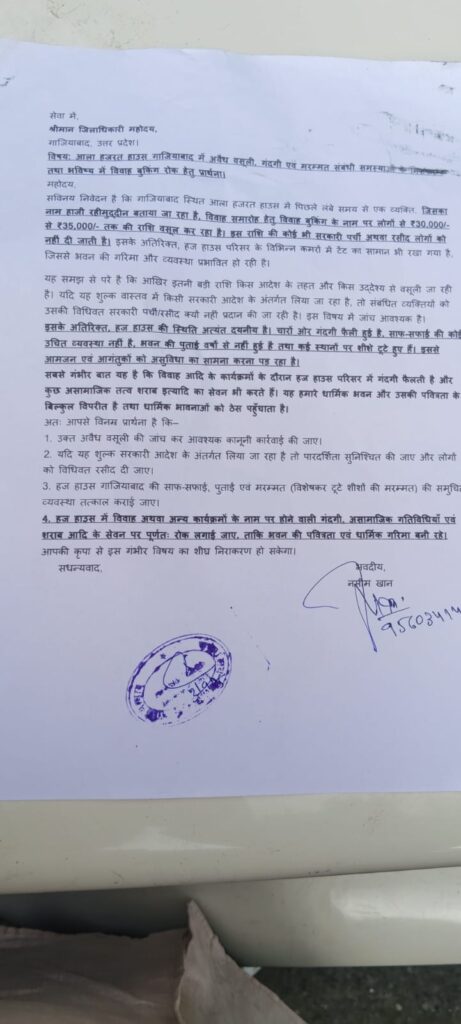 सेवा में,
श्रीमान जिलाधिकारी महोदय,
गाजियाबाद, उत्तर प्रदेश।
विषय: आला हजरत हाउस गाजियाबाद में अवैध वसूली, गंदगी एवं मरम्मत संबंधी समस्याओं के
तथा भविष्य में विवाह बुकिंग रोक हेतु प्रार्थना।
महोदय,
सविनय निवेदन है कि गाजियाबाद स्थित आला हजरत हाउस में पिछले लंबे समय से एक व्यक्ति, जिसका
नाम हाजी रहीमुद्दीन बताया जा रहा है, विवाह समारोह हेतु विवाह बुकिंग के नाम पर लोगों से ₹30,000/-
से ₹35,000/- तक की राशि वसूल कर रहा है। इस राशि की कोई भी सरकारी पर्ची अथवा रसीद लोगों को
नहीं दी जाती है। इसके अतिरिक्त, हज हाउस परिसर के विभिन्न कमरों में टेंट का सामान भी रखा गया है,
जिससे भवन की गरिमा और व्यवस्था प्रभावित हो रही है।
यह समझ से परे है कि आखिर इतनी बड़ी राशि किस आदेश के तहत और किस उद्देश्य से वसूली जा रही
है। यदि यह शुल्क वास्तव में किसी सरकारी आदेश के अंतर्गत लिया जा रहा है, तो संबंधित व्यक्तियों को
उसकी विधिवत सरकारी पर्ची/रसीद क्यों नहीं प्रदान की जा रही है। इस विषय में जांच आवश्यक है।
इसके अतिरिक्त, हज हाउस की स्थिति अत्यंत दयनीय है। चारों ओर गंदगी फैली हुई है, साफ-सफाई की कोई
उचित व्यवस्था नहीं है, भवन की पुताई वर्षों से नहीं हुई है तथा कई स्थानों पर शीशे टूटे हुए हैं। इससे
आमजन एवं आगंतुकों को असुविधा का सामना करना पड़ रहा है।
सबसे गंभीर बात यह है कि विवाह आदि के कार्यक्रमों के दौरान हज हाउस परिसर में गंदगी फैलती है और
कुछ असामाजिक तत्व शराब इत्यादि का सेवन भी करते हैं। यह हमारे धार्मिक भवन और उसकी पवित्रता के
बिल्कुल विपरीत है तथा धार्मिक भावनाओं को ठेस पहुँचाता है।
अतः आपसे विनम्र प्रार्थना है कि–
1. उक्त अवैध वसूली की जांच कर आवश्यक कानूनी कार्रवाई की जाए।
2. यदि यह शुल्क सरकारी आदेश के अंतर्गत लिया जा रहा है तो पारदर्शिता सुनिश्चित की जाए और लोगों
को विधिवत रसीद दी जाए।
3. हज हाउस गाजियाबाद की साफ-सफाई, पुताई एवं मरम्मत (विशेषकर टूटे शीशों की मरम्मत) की समुचित
व्यवस्था तत्काल कराई जाए।
4. हज हाउस में विवाह अथवा अन्य कार्यक्रमों के नाम पर होने वाली गंदगी, असामाजिक गतिविधियों एवं
शराब आदि के सेवन पर पूर्णतः रोक लगाई जाए, ताकि भवन की पवित्रता एवं धार्मिक गरिमा बनी रहे।
आपकी कृपा से इस गंभीर विषय का शीघ्र निराकरण हो सकेगा।
सधन्यवाद,
भवदीय,
नसीम खान